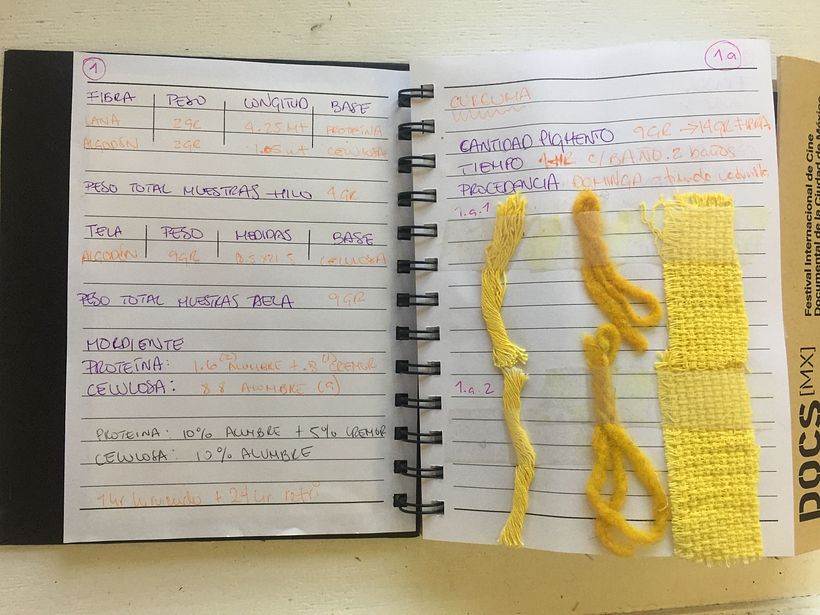 1
FIBRA PESO LONGITUD BASE
LANA 2GR 9.25 MT PROTEÍNA
ALGODÓN 2GR 1.05 MT CELULOSA
PESO TOTAL MUESTRAS HILO 4GR
TELA PESO MEDIDAS BASE
ALGODÓN 9GR CELULOSA
PESO TOTAL MUESTRAS TELA 9GR
MORDIENTE
PROTEÍNA: ALUMBRE + CREMOR
CELULOSA: ALUMBRE
PROTEINA: 10% ALUMBRE + 5% CREMOR
CELULOSA: 10% ALUMBRE
1 hr + 24 hr
1.a
CÚRCUMA
CANTIDAD PIGMENTO 9GR → 14GR FIBRA
TIEMPO 1 HR C/BAÑO. 2 baños
PROCEDANCIA DOMINGA
1.a.1
1.a.2
DOCS [MX]
Festival Internacional de Cine
Documental de la Ciudad de México